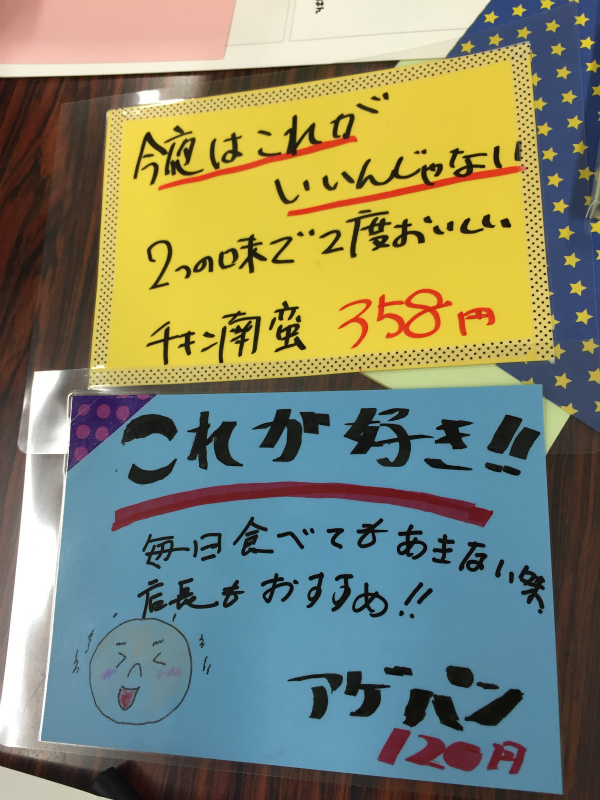 今夜はこれが
いいんじゃない
2つの味で2度おいしい
チキン南蛮 358円
これが好き!!
毎日食べてもあきない味
店長もおすすめ!!
アゲパン
120円